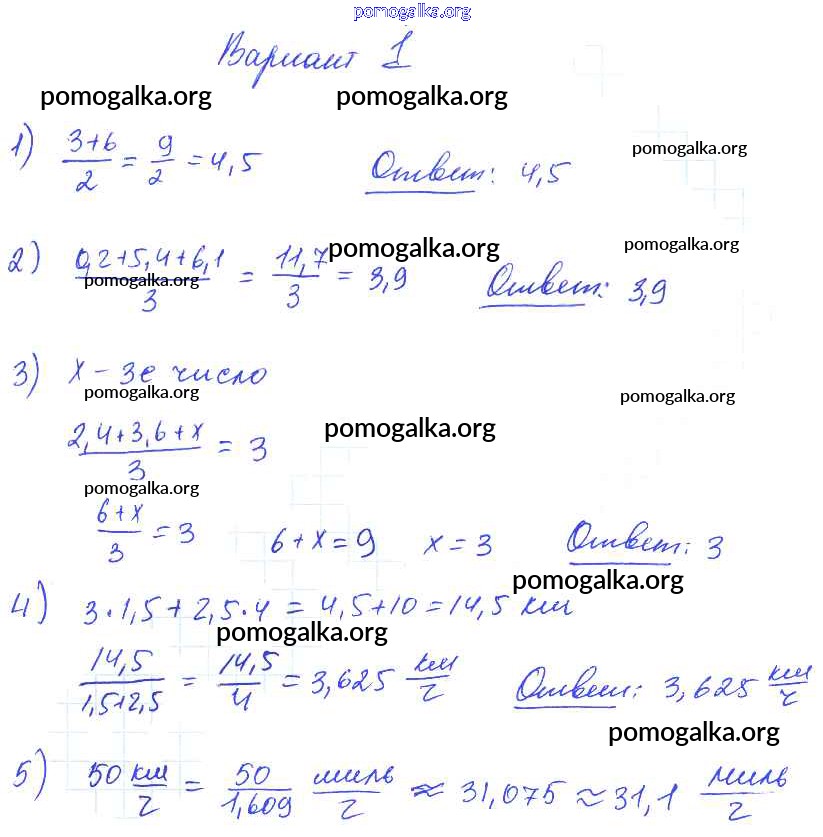 pomogalka.org
Вариант 1
pomogalka.org pomogalka.org
1) (3+6)/2 = 9/2 = 4,5 Ответ: 4,5
pomogalka.org
2) (0,2+5,4+6,1)/3 = 11,7/3 = 3,9 Ответ: 3,9
pomogalka.org pomogalka.org pomogalka.org
3) x – 3е число
pomogalka.org pomogalka.org
(2,4+3,6+x)/3 = 3
pomogalka.org
pomogalka.org
(6+x)/3 = 3 6+x=9 x=3 Ответ: 3
pomogalka.org
4) 3·1,5+2,5·4 = 4,5+10=14,5 км
pomogalka.org
14,5/(1,5+2,5) = 14,5/4 = 3,625 км/ч Ответ: 3,625 км/ч
pomogalka.org
5) 50 км/ч = 50/1,609 миль/ч ≈ 31,075 ≈ 31,1 миль/ч